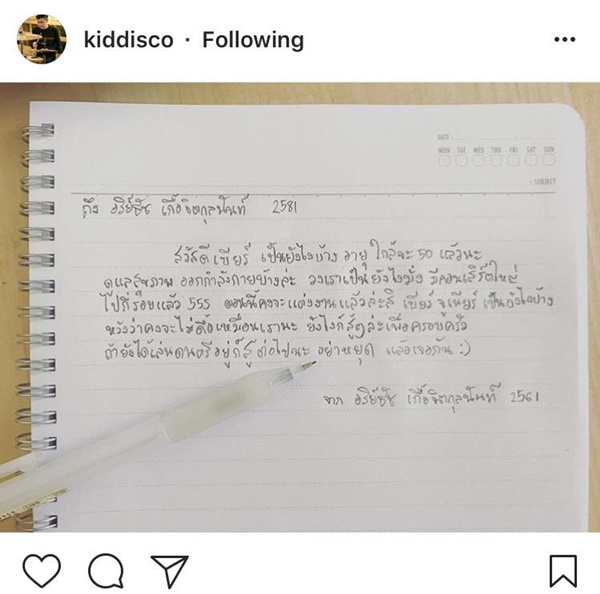 kiddisco · Following
DATE
MON TUE WED THU FRI SAT SUN
SUBJECT
ถึง อริย์ธัช เกื้อจิตกุลนันท์ 2581
สวัสดีเชียร์ เป็นยังไงบ้าง อายุใกล้จะ 50 แล้วนะ
ดูแลสุขภาพ ออกกำลังกายบ้างล่ะ วงเราเป็นยังไงมั่ง มีคอนเสิร์ตใหญ่
ไปกี่รอบแล้ว 555 ตอนนี้คงจะแต่งงานแล้วล่ะสิ เชียร์ จูเนียร์ เป็นยังไงบ้าง
หวังว่าคงจะไม่ดื้อเหมือนเรานะ ยังไงก็สู้ๆล่ะเพื่อครอบครัว
ถ้ายังได้เล่นดนตรีอยู่ก็สู้ต่อไปนะ อย่าหยุด แล้วเจอกัน :)
จาก อริย์ธัช เกื้อจิตกุลนันท์ 2561